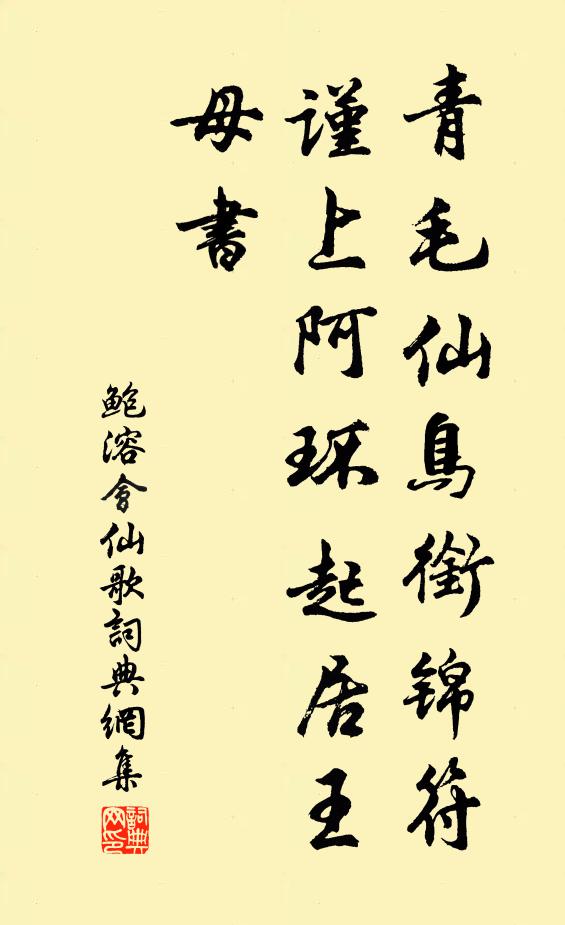 青毛仙鳥銜锦符
謹上阿环起居王
母書
鮑溶會仙歌詞典網集
詞典网印